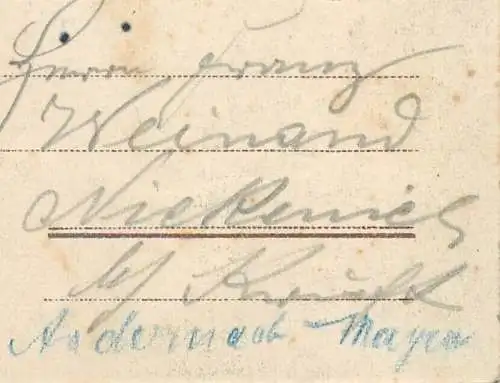 Herrn Franz
Weinand
Nickenich
b/ Kruft
Andernach - Mayen